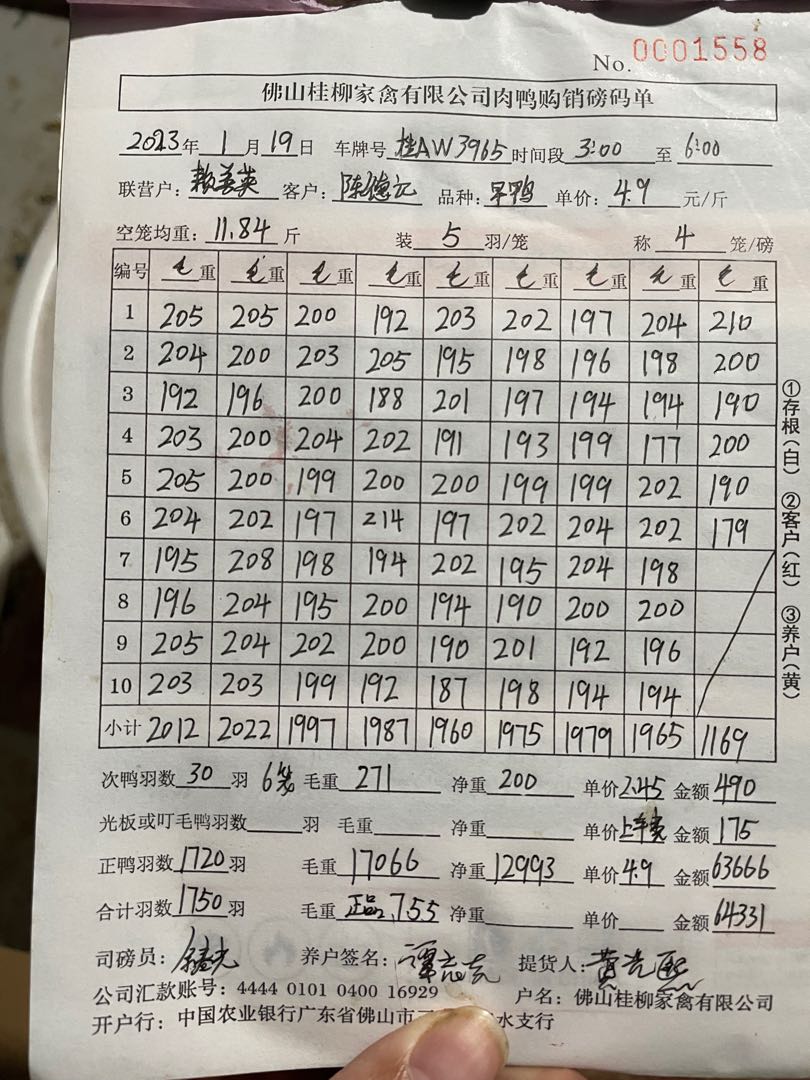 No. 0001558
佛山桂柳家禽有限公司肉鸭购销磅码单
2023年 1月19日 车牌号 桂AW3965 时间段 3:00 至 6:00
联营户: 赖美英 客户: 陈德记 品种: 早鸭 单价: 4.9 元/斤
空笼均重: 11.84 斤 装 5 羽/笼 称 4 笼/磅
编号 毛重 毛重 毛重 毛重 毛重 毛重 毛重 毛重 毛重
1 205 205 200 192 203 202 197 204 210
2 204 200 203 205 195 198 196 198 200
3 192 196 200 188 201 197 194 194 190
4 203 200 204 202 191 193 199 177 200
5 205 200 199 200 200 199 199 202 190
6 204 202 197 214 197 202 204 202 179
7 195 208 198 194 202 195 204 198
8 196 204 195 200 194 190 200 200
9 205 204 202 200 190 201 192 196
10 203 203 199 192 187 198 194 194
小计 2012 2022 1997 1987 1960 1975 1979 1965 1169
次鸭羽数 30 羽 6笼 毛重 271 净重 200 单价 2.45 金额 490
光板或叮毛鸭羽数 羽 毛重 净重 单价 上车费 金额 175
正鸭羽数 1720 羽 毛重 17066 净重 12993 单价 4.9 金额 63666
合计羽数 1750 羽 毛重 正品 7.55 净重 单价 金额 64331
司磅员: 养户签名: 提货人:
公司汇款账号: 4444 0101 0400 16929 户名: 佛山桂柳家禽有限公司
开户行: 中国农业银行广东省佛山市 水支行
①存根(白) ②客户(红) ③养户(黄)